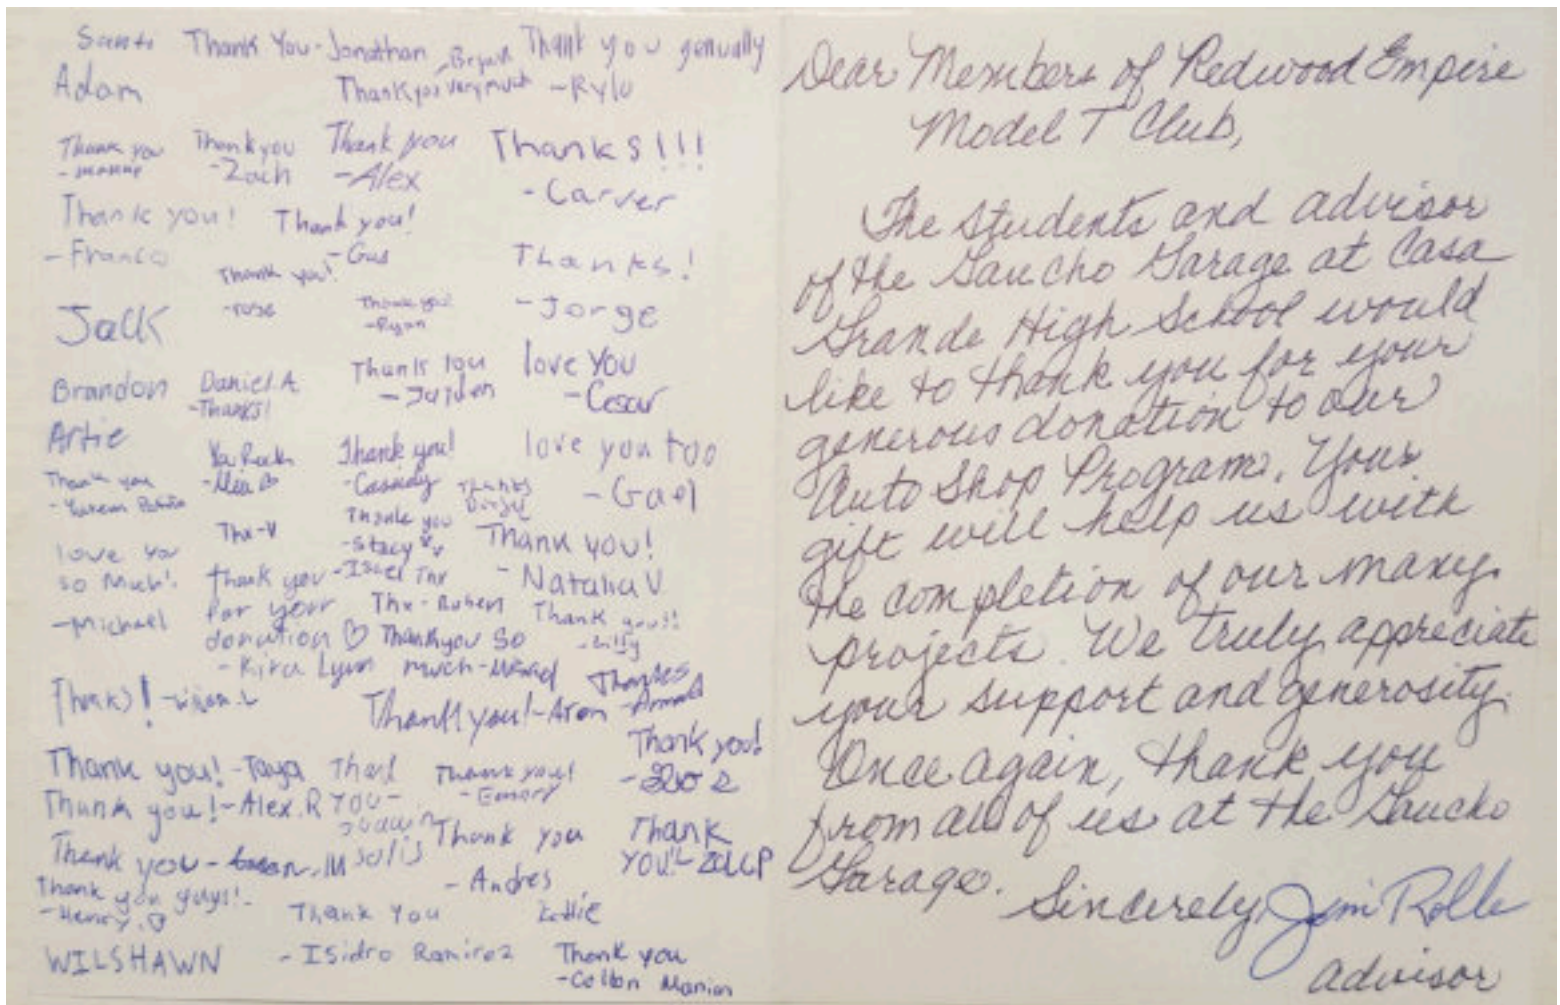 Santi Thank You - Jonathan
Adam
Thank you very much - Bryan
Thank you genually
- Rylo
Thank you
Thank you
- Zach
Thank you
- Alex
Thanks!!!
- Carver
Thank you!
- Franco
Thank you!
- Gus
Thank you!
- rose
Thank you!
- Ryan
Thanks!
- Jorge
Jack
Brandon
Daniel.A
- Thanks!
Thank You
- Jaiden
love you
- Cesar
Artie
You Rock
Thank you!
- Cassidy
Thanks
love you too
- Gael
Thank you
Thx-V
Thank you
- Stacy
Thank you!
- Natalia V
love you
so much!
- Michael
Thank you
for your
donation ♡
- Kira Lynn
Thx
Thx - Ruben
Thank you so
much -
Thank you!!
- Lilly
Thanks!
Thank you! - Aron
Thanks
Thank you!
Thank you! - Taya
Thank you! - Alex.R
YOU -
solis
Thank you!
- Emory
Thank you
- Andres
Thank
YOU!
Thank you -
Thank you guys!
- Henry ♡
Thank You
- Isidro Ramirez
Eddie
WILSHAWN
Thank you
- Colton
Dear Members of Redwood Empire
Model T Club,
The students and advisor
of the Gaucho Garage at Casa
Grande High School would
like to thank you for your
generous donation to our
Auto Shop Program. Your
gift will help us with
the completion of our many
projects. We truly appreciate
your support and generosity.
Once again, thank you
from all of us at the Gaucho
Garage.
Sincerely, Jim Rolle
advisor